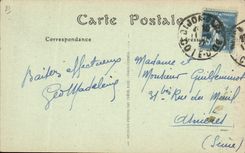 Carte Postale
Correspondance
Baisers affectueux
Geo Madeleine
Madame et
Monsieur Guilleminot
31 bis Rue du Mesnil
Asnières
(Seine)